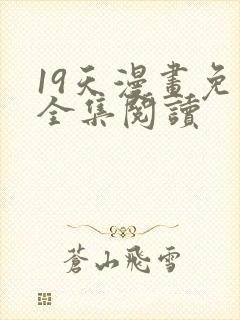 19天漫畫免
全集閱讀
蒼山飛雪